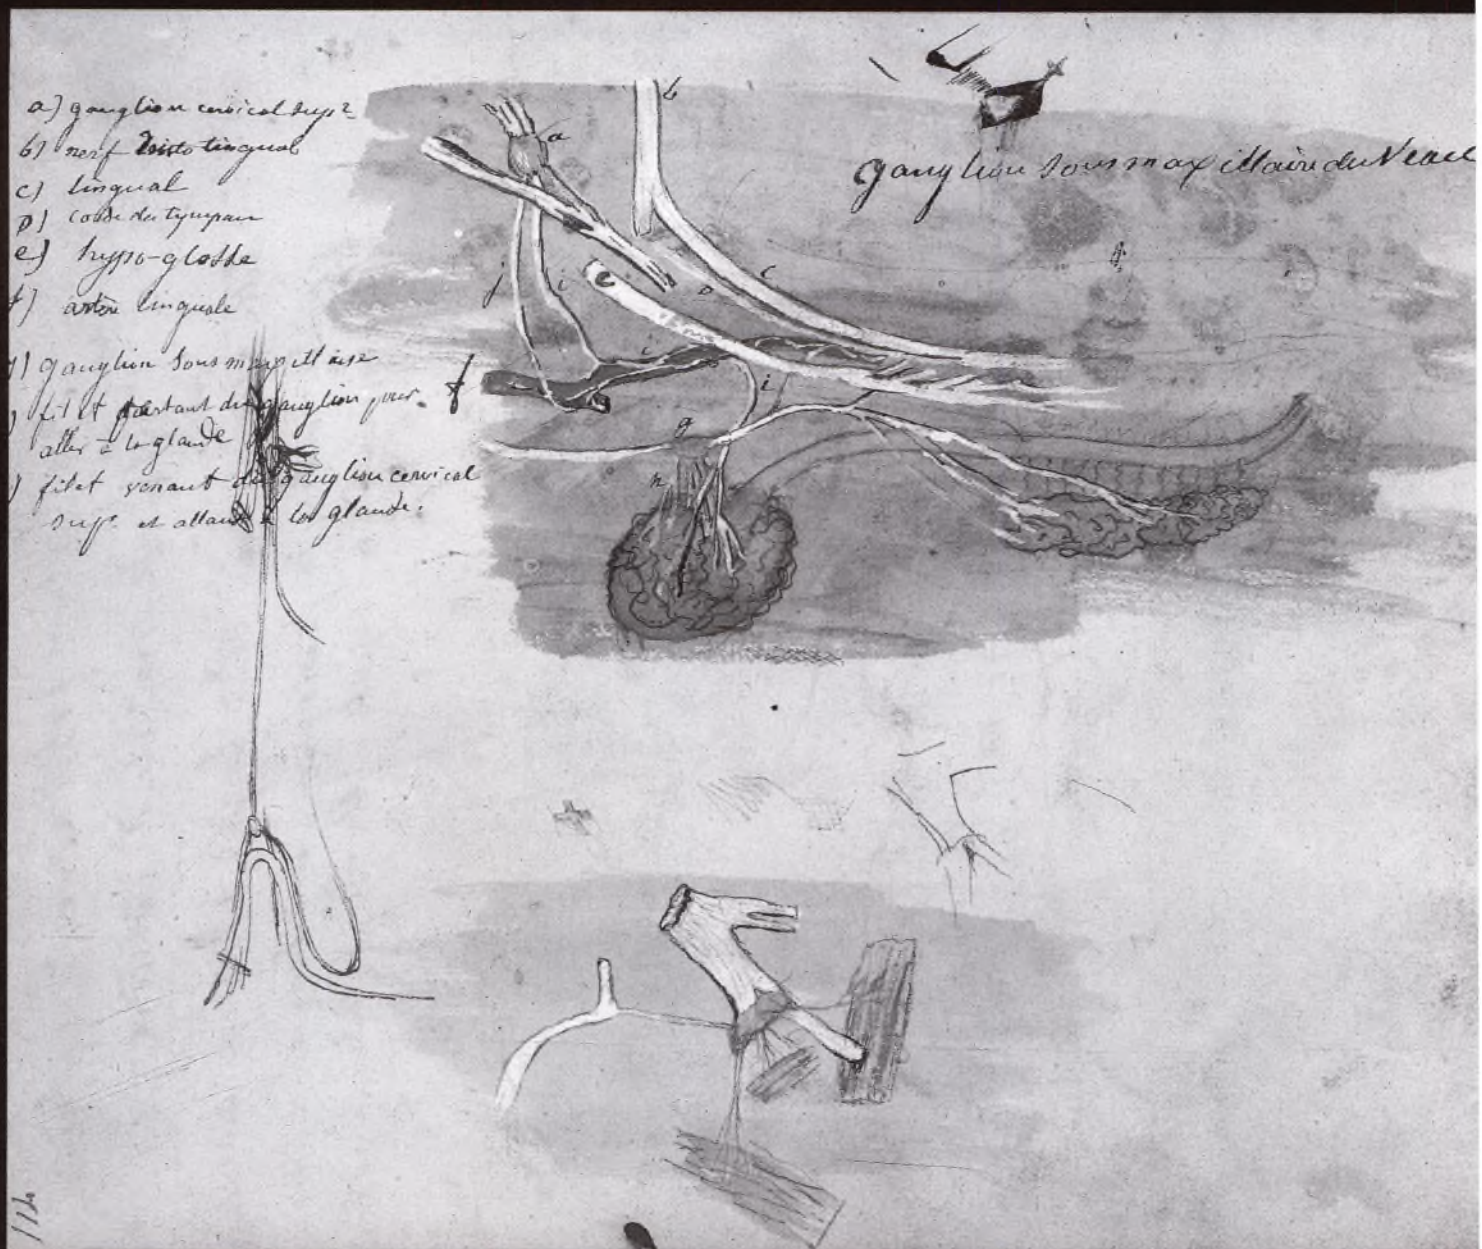 a) ganglion cervical supr
b) nerf lingual
c) lingual
D) corde du tympan
e) hypo-glosse
f) artère linguale
g) ganglion Sous maxillaire
) filet partant du ganglion pour
aller à la glande
) filet venant du ganglion cervical
sup. et allant à la glande.
ganglion Sous maxillaire du Veau
b
a
c
j
i
D
e
g
i
f
i
g
h
112